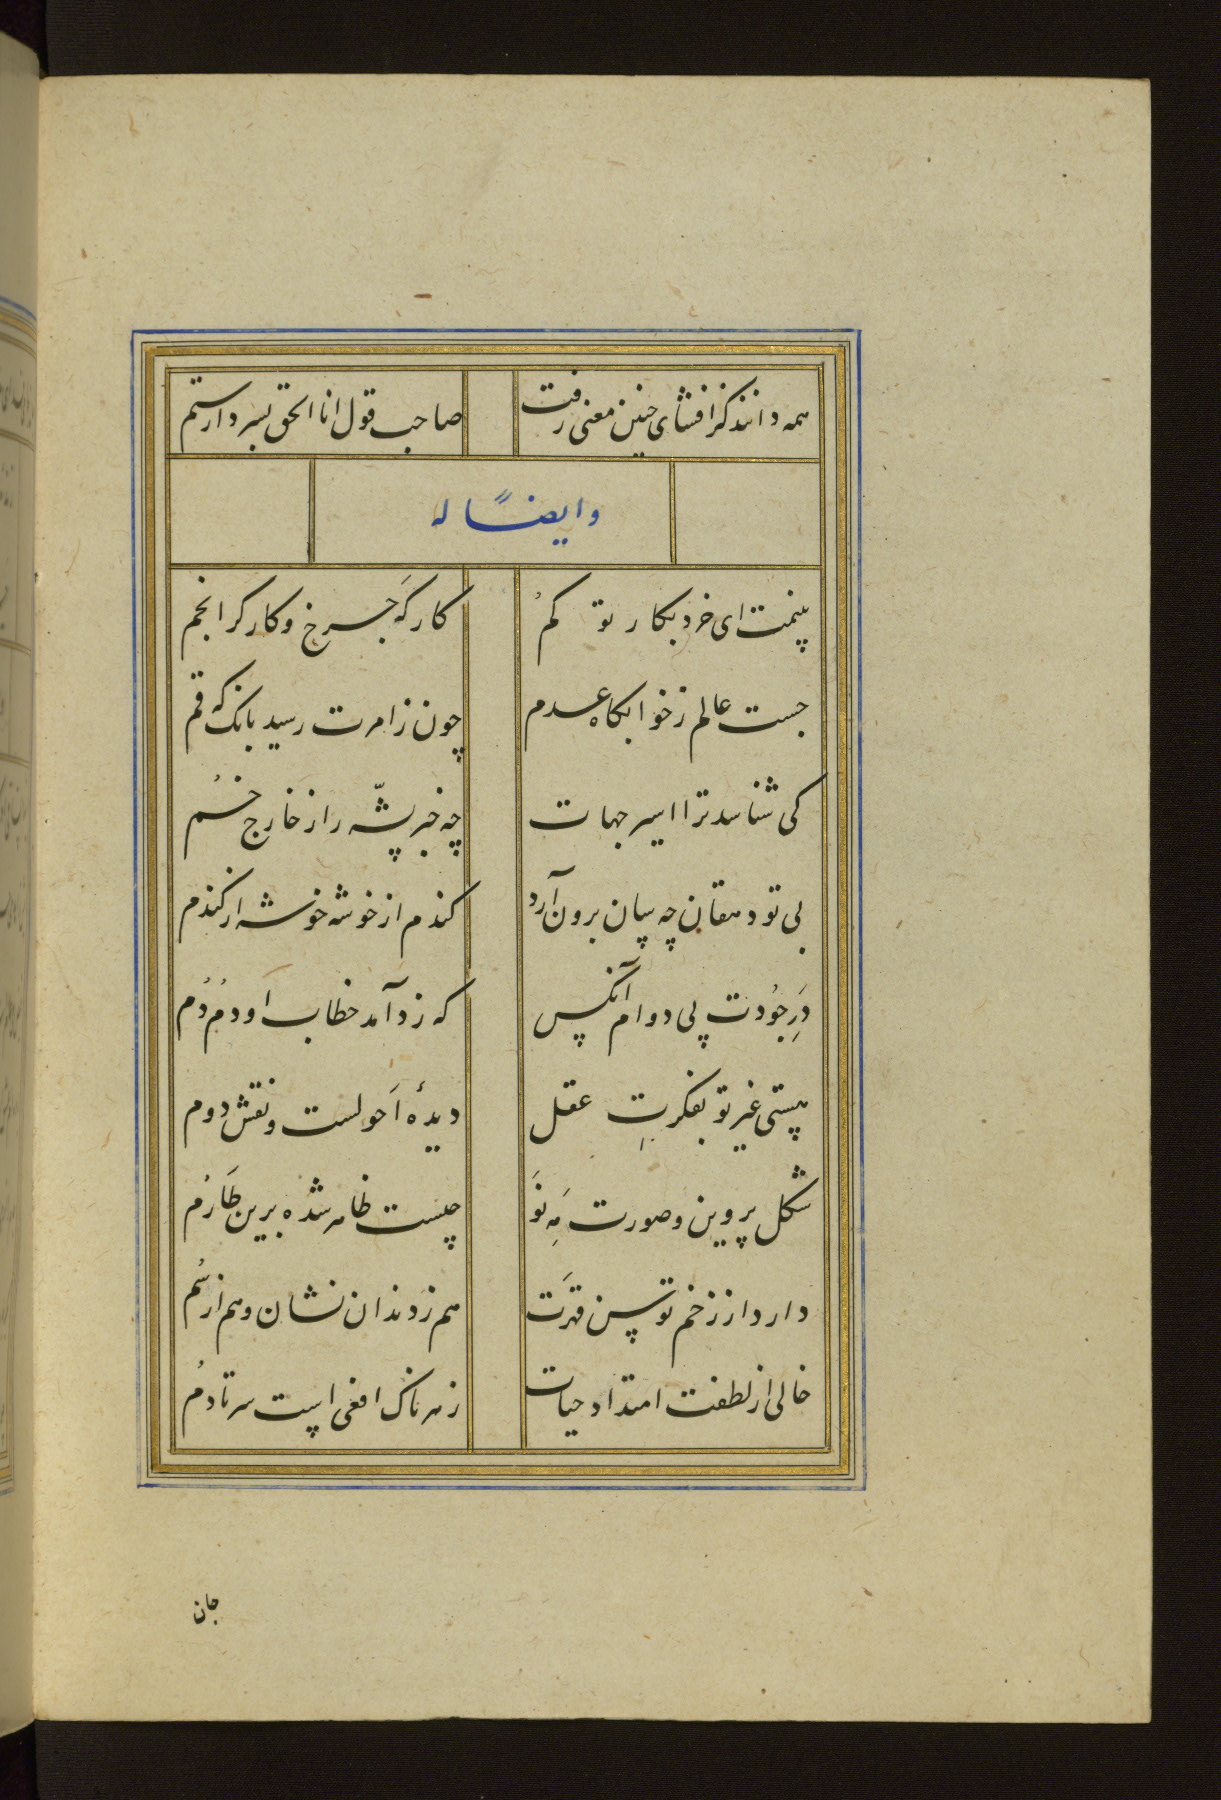 همه دانند کز افشای چنین معنی رفت صاحب قول انا الحق بسر دار ستم
وایضًا له
پنمت ای خرد بکار تو کُم کارکَه چَرخ و کارکر انجم
جست عالم ز خوابکاه عدم چون ز امرت رسید بانک که قم
کی شناسد ترا اسیر جهات چه خبر پشّه را ز خارج خُم
بی تو دهقان چه سان برون آرد کندم از خوشه خوشه از کندم
دَرِ جُودت پی دوام آنکس که زد آمد خطاب او دُم دُم
هستی غیر تو بفکرتِ عقل دیدۀ اَحولست و نقش دوم
شکل پروین و صورت مَهِ نَو چیست ظاهر شده برین طَارُم
دارد از زخم توسن قهرَت هم ز دندان نشان و هم از سُم
خالی از لطفت امتداد حیات زهرناک افعی است سر تا دُم
جان